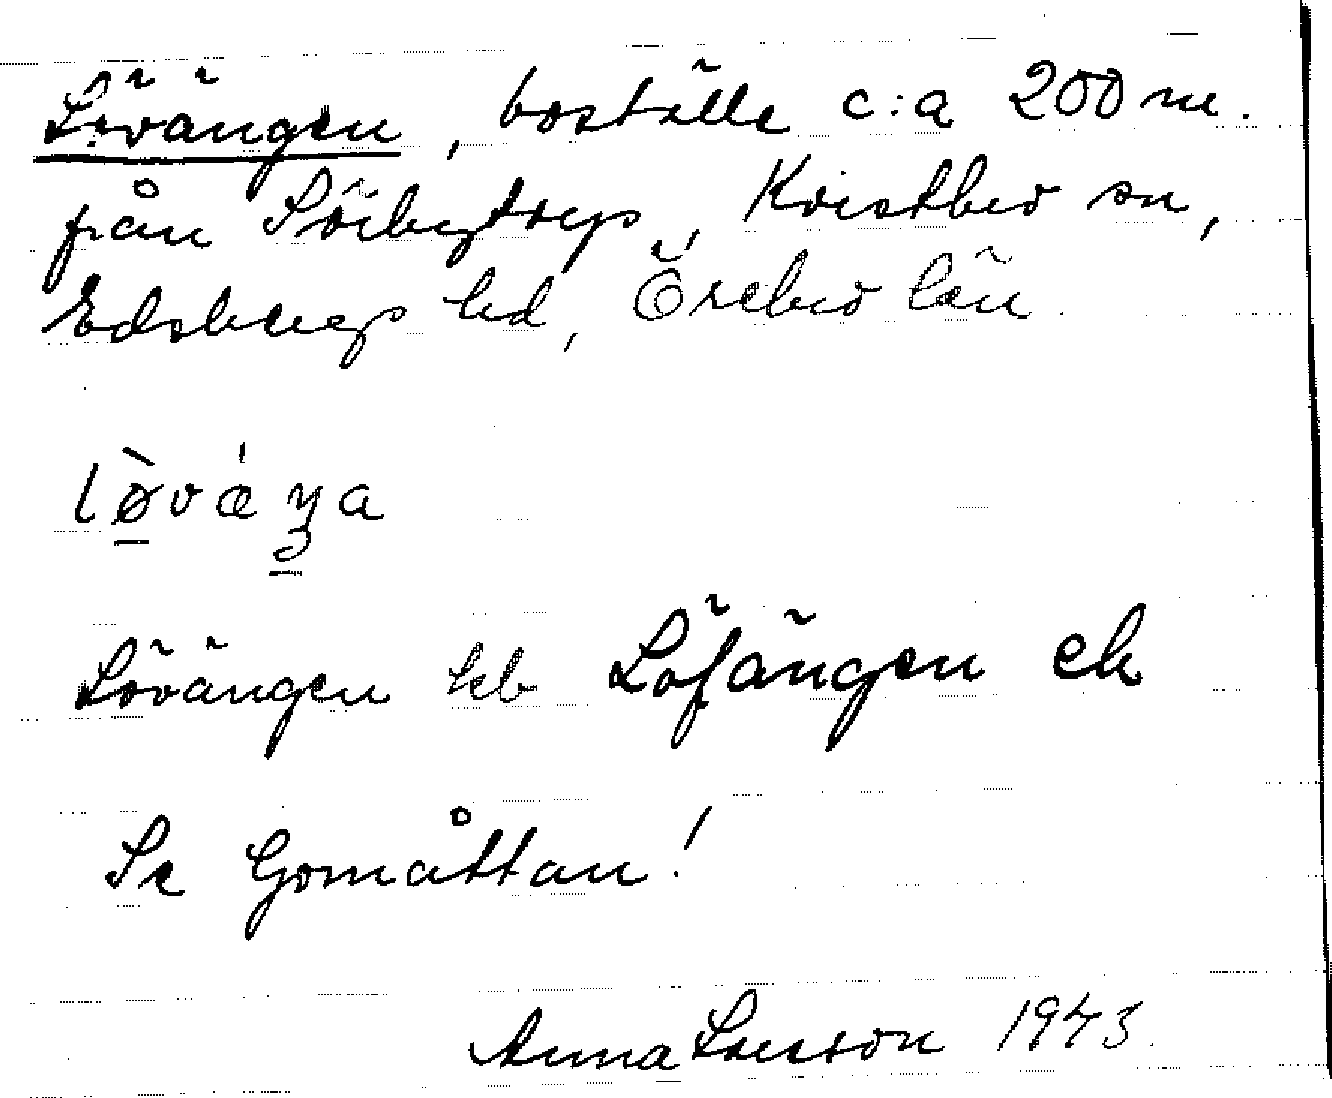 Lövängen, boställe c:a 200 m.
från Sörbytorp, Kvistbro sn,
Edsbergs hd, Örebro län
Lövängen kb Löfängen ek
Se Gomåttan!
Anna Larsson 1943.